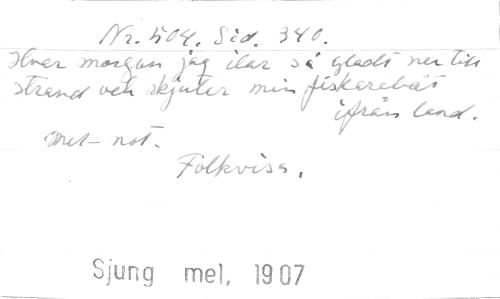 Nr. 504. Sid. 340.
Hvar morgon jag ilar så gladt ner till
strand och skjuter min fiskarebåt
ifrån land.
Mel-not.
Folkvisa.
Sjung mel, 1907